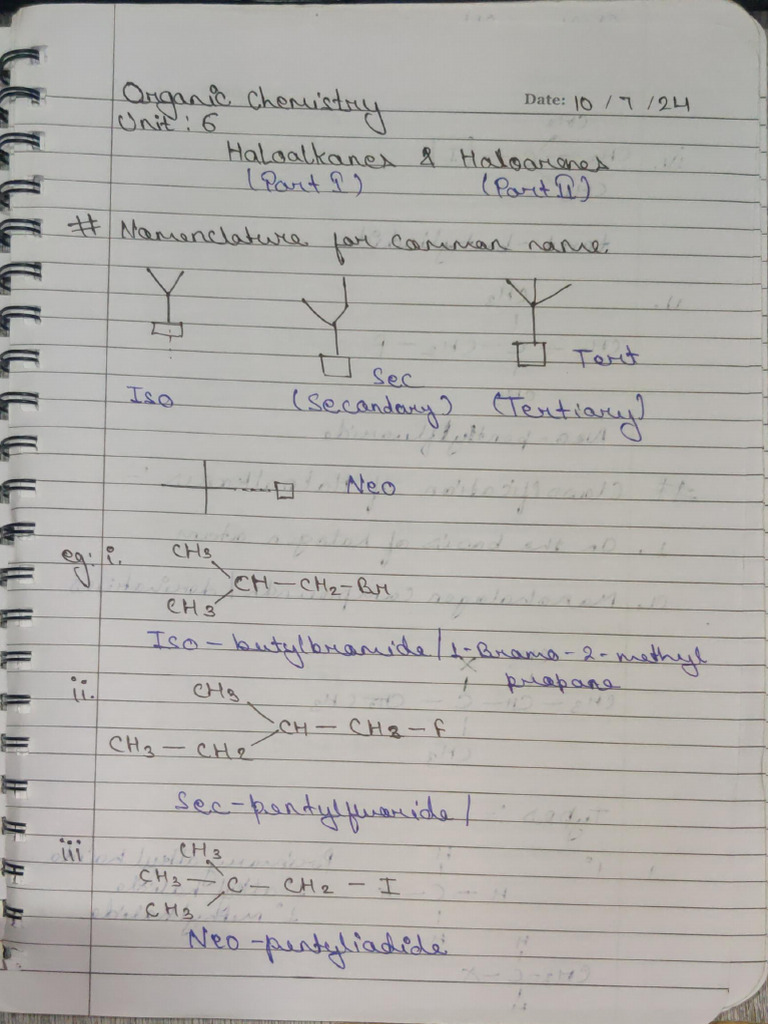 Organic Chemistry
Date: 10 / 7 / 24
Unit : 6
Haloalkanes & Haloarenes
(Part I) (Part II)
# Nomenclature for common name.
Sec Tert
Iso (Secondary) (Tertiary)
Neo
eg: i. CH3
CH — CH2 — Br
CH3
Iso - butylbromide / 1 - Bromo - 2 - methyl
propane
ii. CH3
CH — CH2 — F
CH3 — CH2
Sec - pentylfluoride /
iii CH3
CH3 — C — CH2 — I
CH3
Neo - pentyliodide